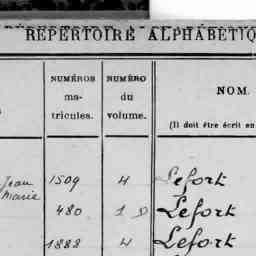 RÉPERTOIRE ALPHABÉTIQ
NUMÉROS ma- tricules.
NUMÉRO du volume.
NOM.
(Il doit être écrit en
Jean Marie 1509 4 Lefort
480 1 D Lefort
1888 4 Lefort